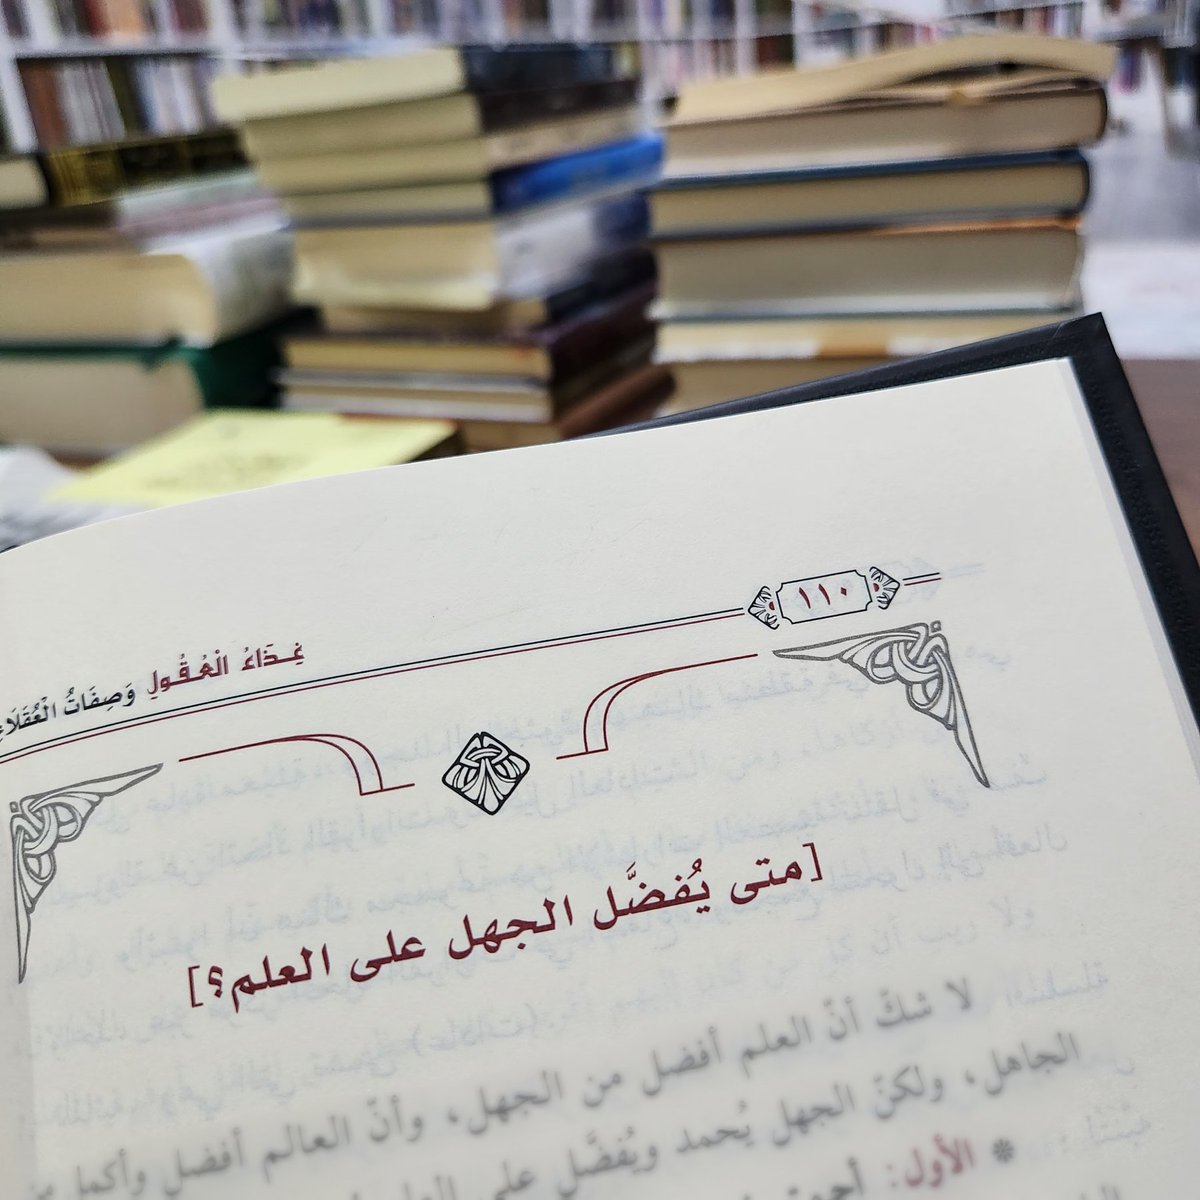 ١١٠
غِذَاءُ الْعُقُولِ وَصِفَاتُ الْعُقَلَاءِ
[متى يُفضَّل الجهل على العلم؟]
لا شكّ أنّ العلم أفضل من الجهل، وأنّ العالم أفضل وأكمل من
الجاهل، ولكنّ الجهل يُحمد ويُفضَّل على
* الأول: